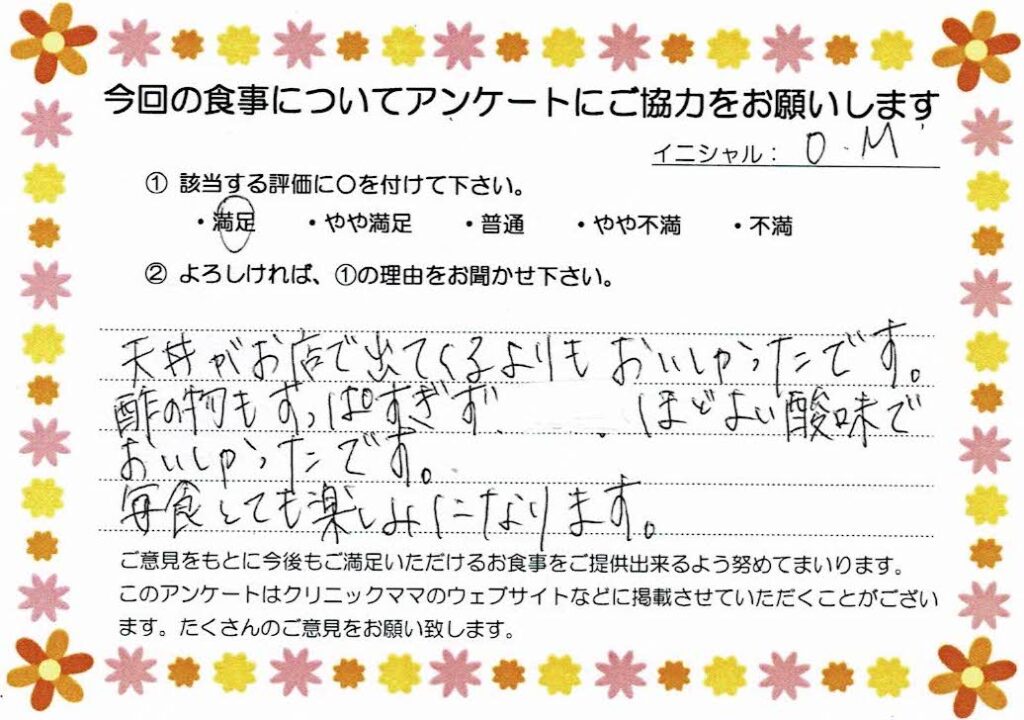 今回の食事についてアンケートにご協力をお願いします
イニシャル： O.M
① 該当する評価に〇を付けて下さい。
・満足 ・やや満足 ・普通 ・やや不満 ・不満
② よろしければ、①の理由をお聞かせ下さい。
天丼がお店で出てくるよりもおいしかったです。
酢の物もすっぱすぎず、ほどよい酸味で
おいしかったです。
毎食とても楽しみになります。
ご意見をもとに今後もご満足いただけるお食事をご提供出来るよう努めてまいります。
このアンケートはクリニックママのウェブサイトなどに掲載させていただくことがござい
ます。たくさんのご意見をお願い致します。